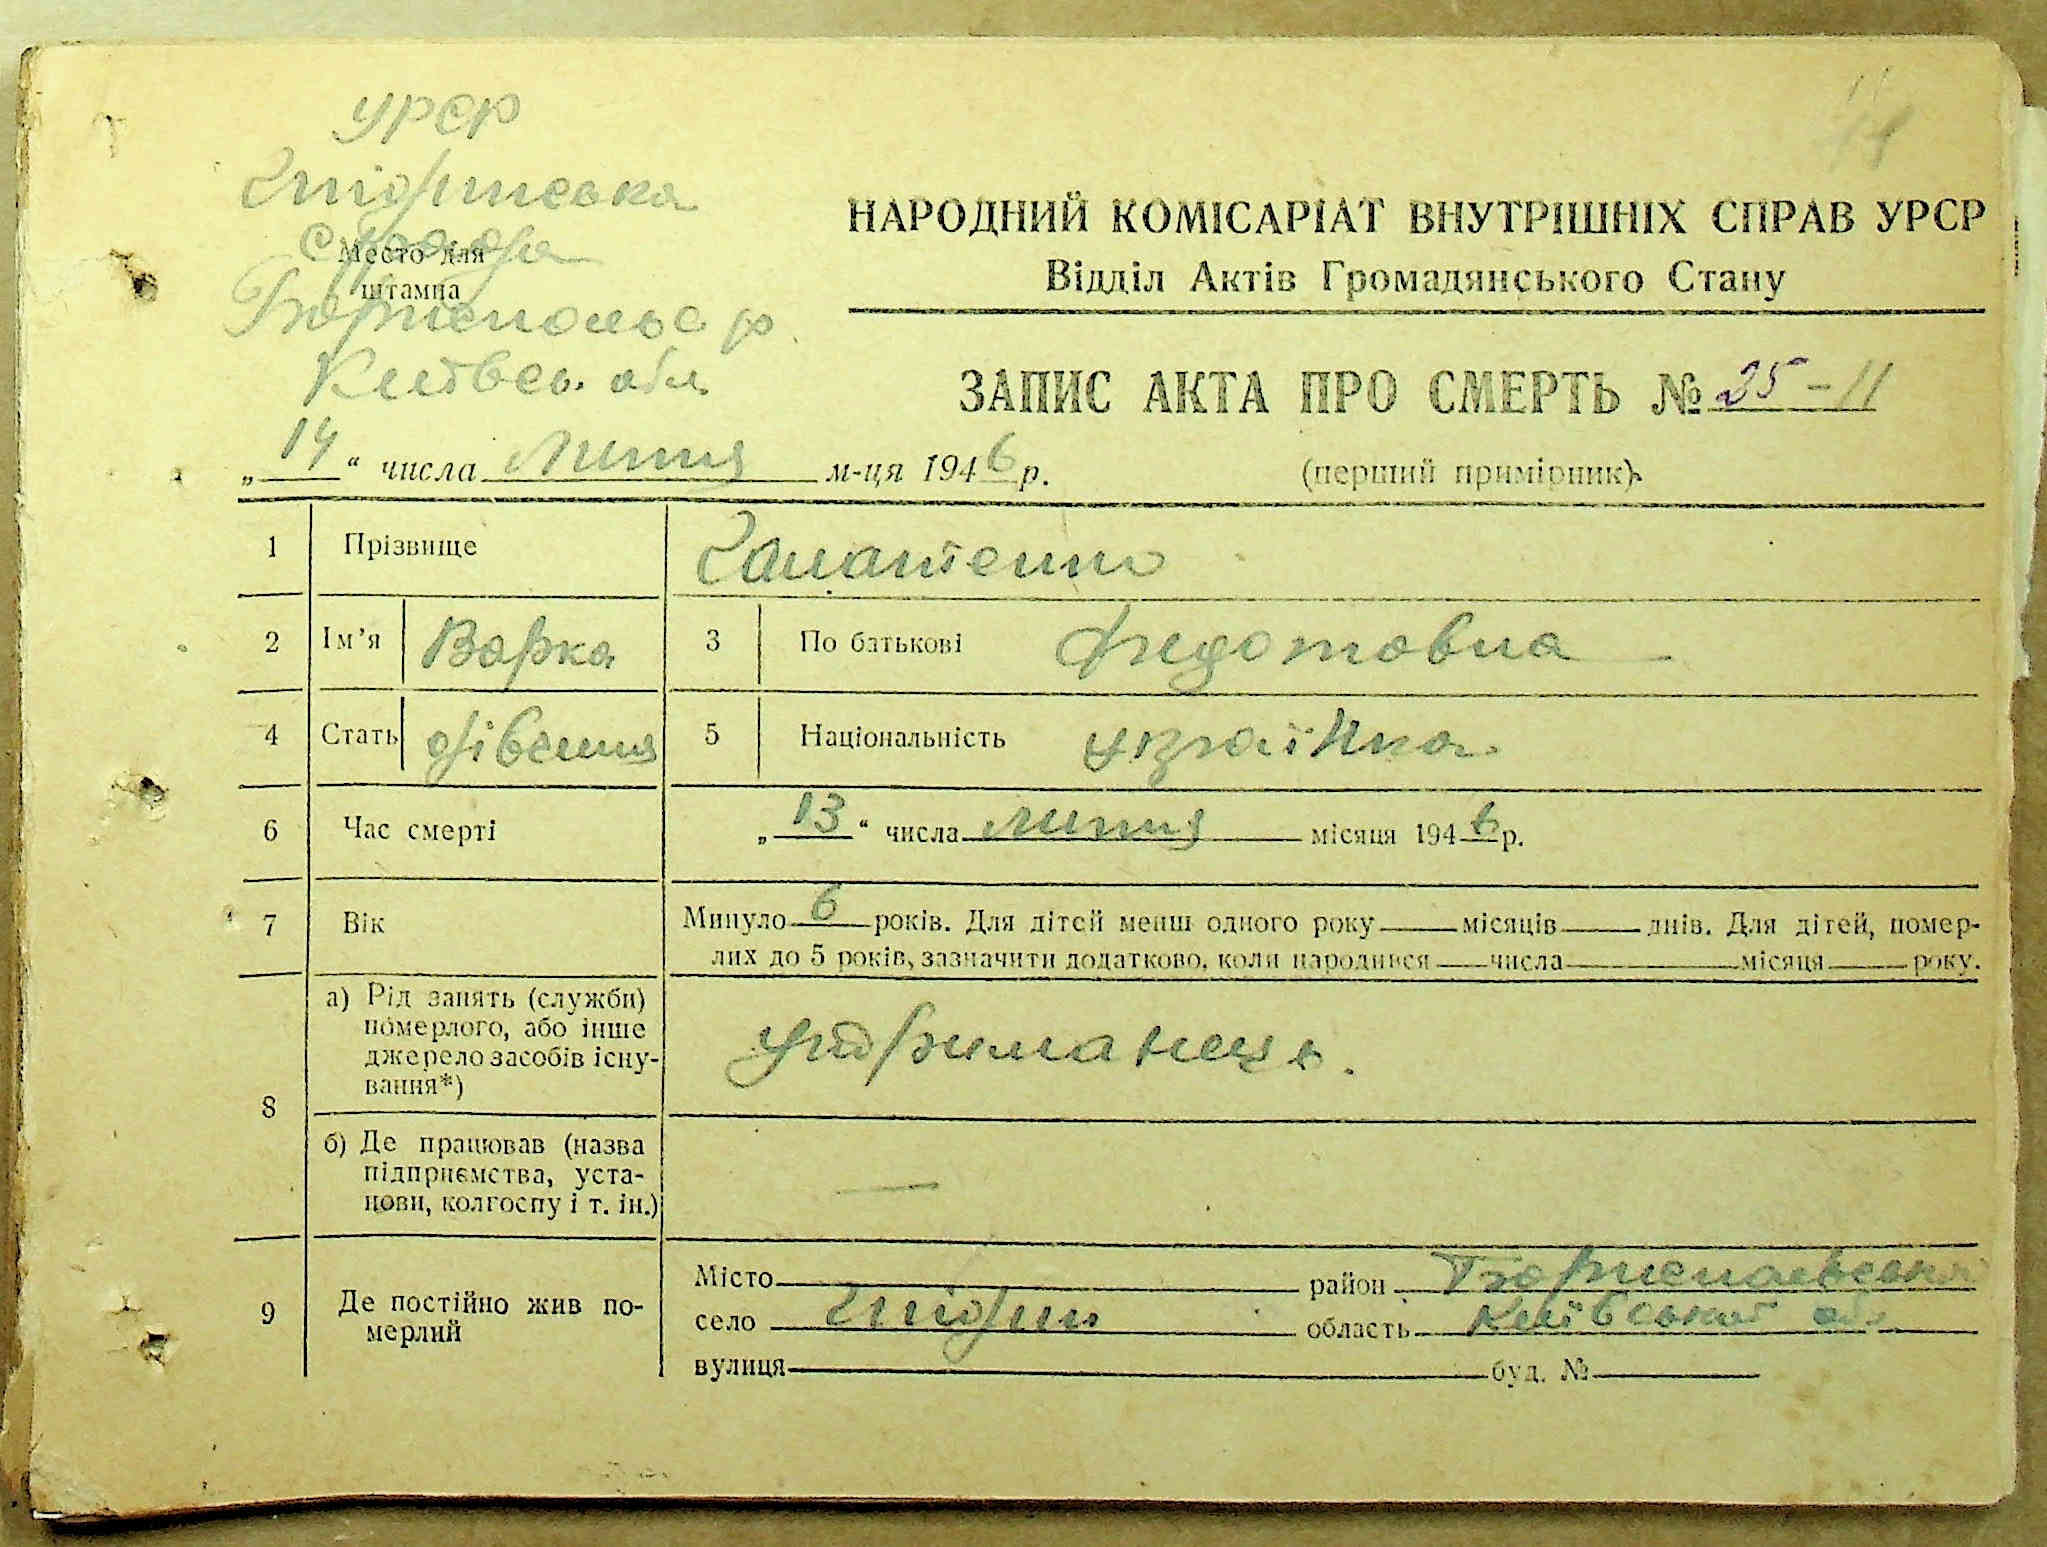 УРСР
Гнідинська
с/рада
Место для
штампа
Бориспольс р.
Київсь. обл.
НАРОДНИЙ КОМІСАРІАТ ВНУТРІШНІХ СПРАВ УРСР
Відділ Актів Громадянського Стану
ЗАПИС АКТА ПРО СМЕРТЬ № 25-11
„14“ числа Липня м-ця 1946 р.
(перший примірник).
1 Прізвище
2 Ім’я Варка 3 По батькові Федотовна
4 Стать 5 Національність українка.
6 Час смерті „13“ числа липня місяця 1946 р.
7 Вік Минуло 6 років. Для дітей менш одного року — місяців — днів. Для дітей, помер-
лих до 5 років, зазначити додатково, коли народився — числа — місяця — року.
8 а) Рід занять (служби)
померлого, або інше
джерело засобів існу-
вання*)
утриманець.
б) Де працював (назва
підприємства, уста-
нови, колгоспу і т. ін.)
—
9 Де постійно жив по-
мерлий
Місто район Бориспольський
село Гнідин область Київської обл.
вулиця буд. №